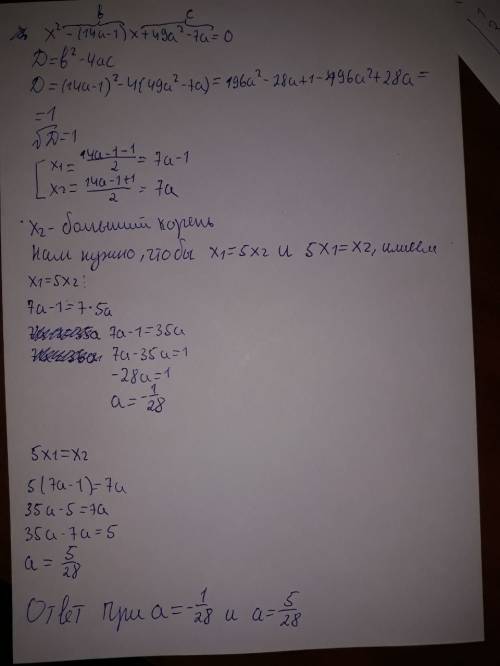 b c
x² - (14a-1)x + 49a² - 7a = 0
D = b² - 4ac
D = (14a-1)² - 4(49a² - 7a) = 196a² - 28a + 1 - 196a² + 28a =
= 1
√D = 1
x1 = (14a-1-1)/2 = 7a-1
x2 = (14a-1+1)/2 = 7a
x2 - больший корень
Нам нужно, чтобы x1 = 5x2 и 5x1 = x2, имеем
x1 = 5x2:
7a-1 = 7·5a
7a-1 = 35a
7a-35a = 1
-28a = 1
a = -1/28
5x1 = x2
5(7a-1) = 7a
35a-5 = 7a
35a-7a = 5
a = 5/28
Ответ при a = -1/28 и a = 5/28